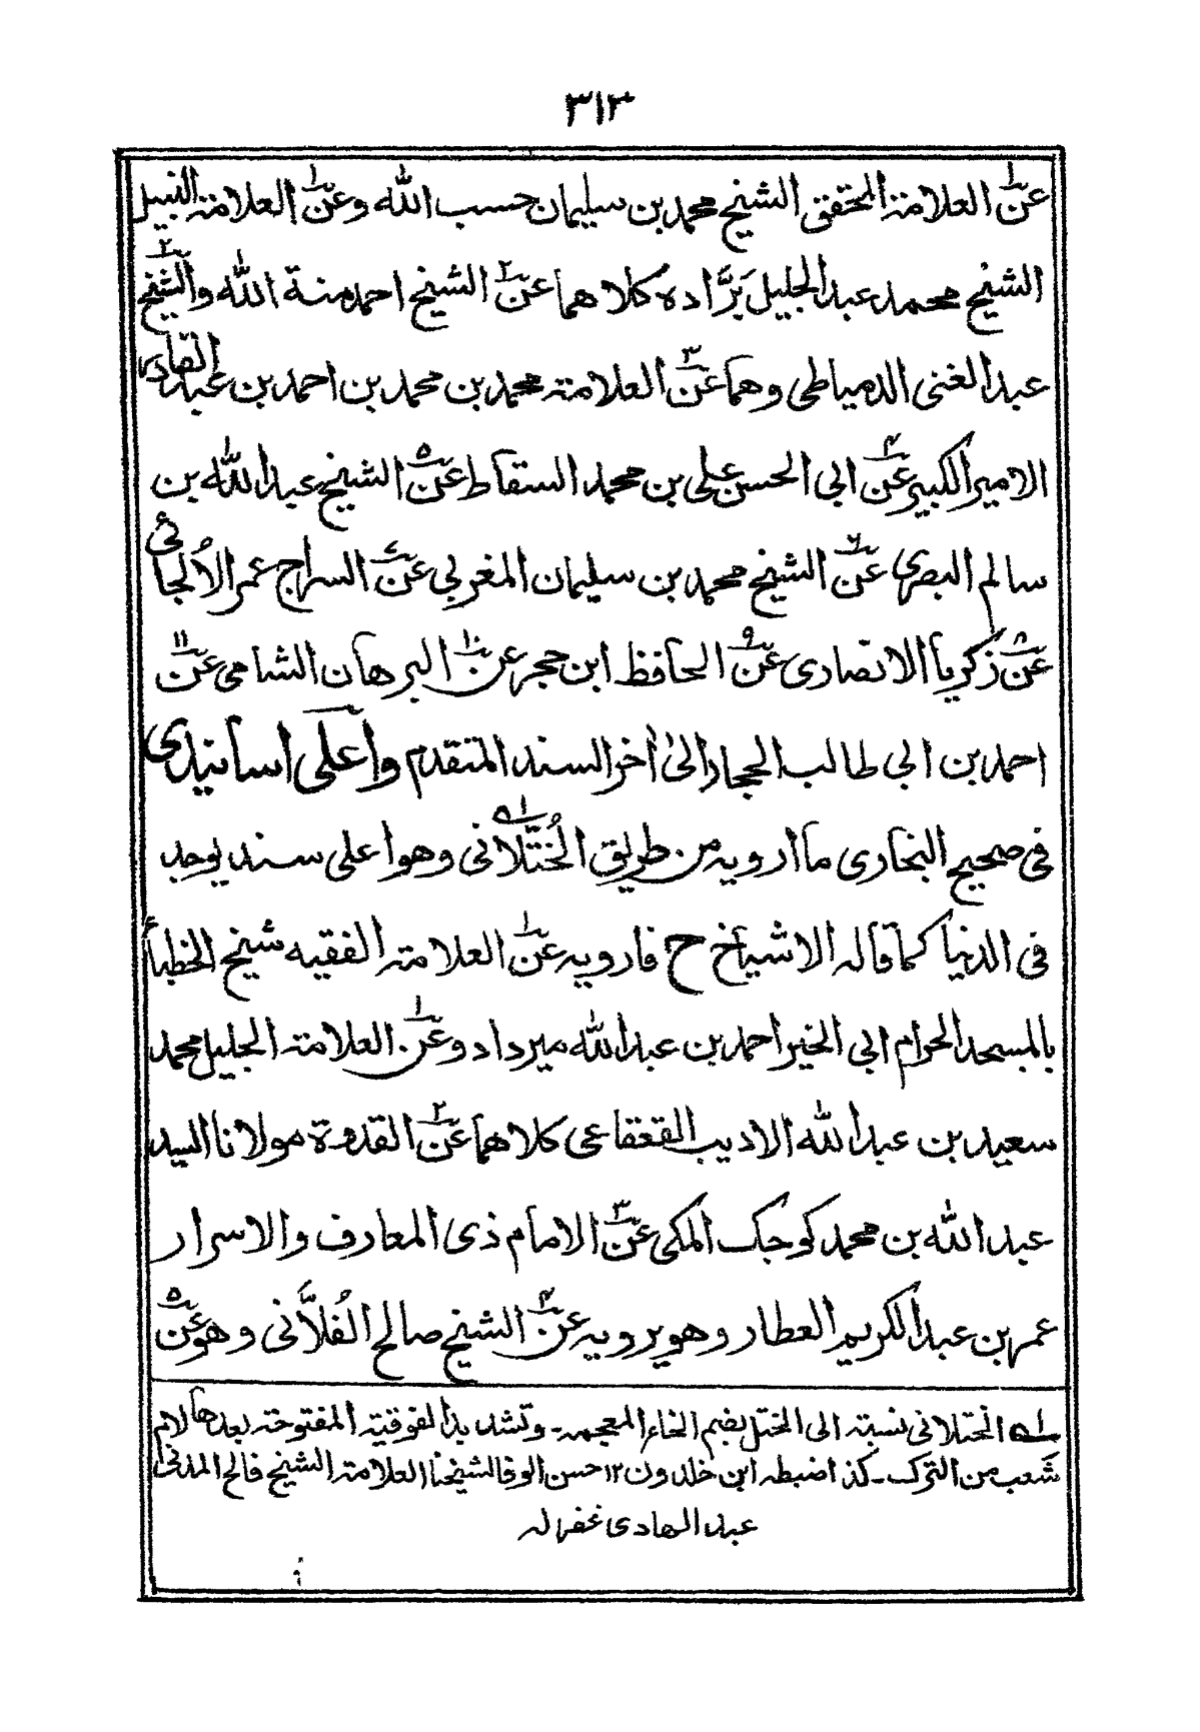 ٣١٣
عن١ العلامة المحقق الشيخ محمد بن سليمان حسب الله وعن١ العلامة النبيل
الشيخ محمد عبد الجليل بَرَّاده كلاهما عن٢ الشيخ احمد منة الله والشيخ٢
عبد الغنى الدمياطى وهما عن٣ العلامة محمد بن محمد بن احمد بن عبد القادر
الامير الكبير عن٤ ابى الحسن على بن محمد السقاط عن٥ الشيخ عبد الله بن
سالم البصرى عن٦ الشيخ محمد بن سليمان المغربى عن٧ السراج عمر الاُلجائى
عن٨ زكريا الانصارى عن٩ الحافظ ابن حجر عن١٠ البرهان الشامى عن١١
احمد بن ابى طالب الحجار الىٰ اٰخر السند المتقدم واعلى اسانيدى
فى صحيح البخارى ما ارويه من طريق الخُتَّلانى١ وهو اعلى سند يوجد
فى الدنيا كما قاله الاشياخ ح فارويه عن١ العلامة الفقيه شيخ الخطباء
بالمسجد الحرام ابى الخير احمد بن عبد الله ميرداد وعن١ العلامة الجليل محمد
سعيد بن عبد الله الاديب القعقاعى كلاهما عن٢ القدوة مولانا السيد
عبد الله بن محمد كوجك المكى عن٣ الامام ذى المعارف والاسرار
عمر بن عبد الكريم العطار وهو يرويه عن٤ الشيخ صالح الفُلاَّنى وهو عن٥
١ الختلانى نسبة الى الختل بضم الخاء المعجمه۔ وتشديد الفوقية المفتوحة بعدها لام
شعب من الترك۔ كذا ضبطه ابن خلدون ١٢ حسن الوفا لشيخنا العلامة الشيخ فالح المدنى
عبد الهادى غفر له